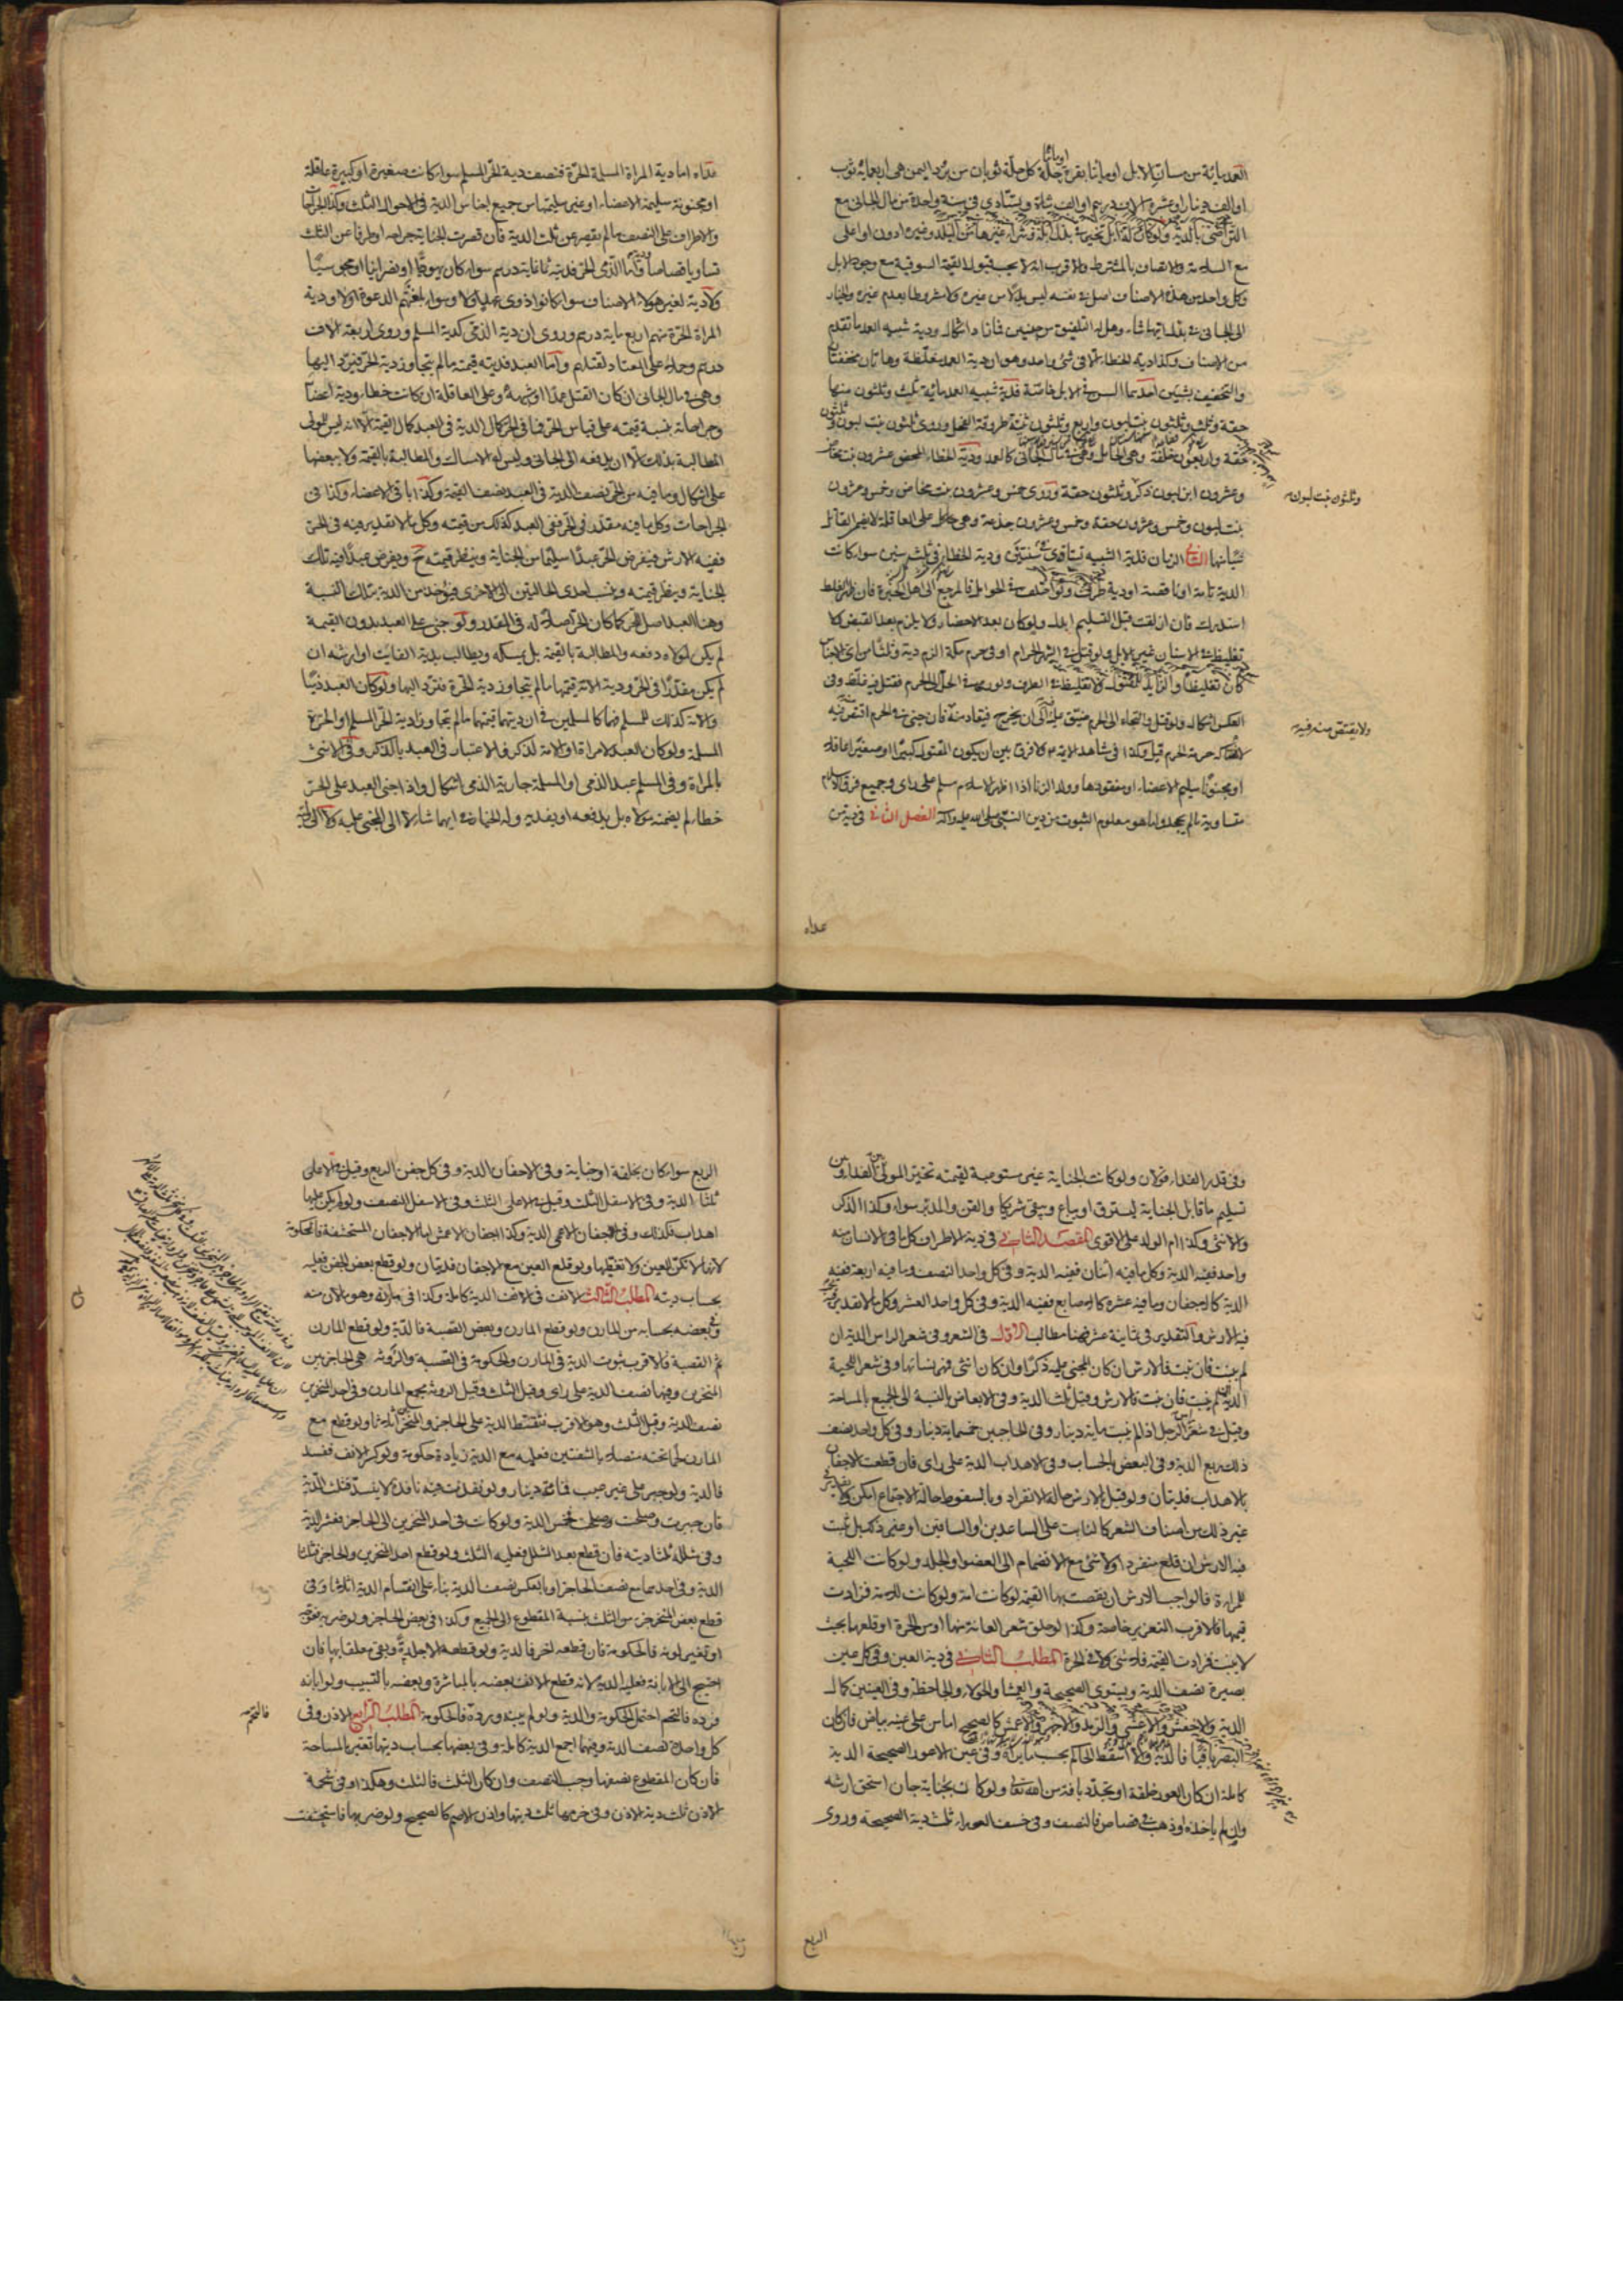 العمد مائة من مسان الابل او مائتا بقرة او مائتا حلة كل حلة ثوبان من برد اليمن هي اربعمائة ثوب
او الف دينار او عشرة الاف درهم او الف شاة ويستادى في سنة واحدة من مال الجاني مع
التراضي بالدية ولو كان له ابل تخير في بذل ابله وشراء غيرها من البلد وغيره ادون او اعلى
مع السلامة والاتصاف بالمشترط والاقرب انه لا يجب قبول القيمة السوقية مع وجود الابل
وكل واحد من هذه الاصناف اصل في نفسه ليس بدلا من غيره ولا مشروطا بعدم غيره والخيار
الى الجاني في بذل ايها شاء وهل له التلفيق من جنسين فما زاد اشكال ودية شبيه العمد ما تقدم
من الاصناف وكذا دية الخطاء الا في شئ واحد وهو ان دية العمد مغلظة وهاتان مخففتان
والتخفيف بشيئين احدهما السن في الابل خاصة فدية شبيه العمد مائة ثلث وثلثون منها
حقة وثلث وثلثون بنت لبون واربع وثلثون ثنية طروقة الفحل وروى ثلثون بنت لبون وثلثون
حقة واربعون خلفة وهي الحامل وهي في مال الجاني كالعمد ودية الخطاء المحض عشرون بنت مخاض
وعشرون ابن لبون ذكر وثلثون حقة وروى خمس وعشرون بنت مخاض وخمس وعشرون
وثلثون بنت لبون
بنت لبون وخمس وعشرون حقة وخمس وعشرون جذعة وهي على العاقلة لا يغرم القاتل
شيئا منها الثاني الزمان فدية الشبيه تستادى في سنتين ودية الخطاء في ثلث سنين سواء كانت
الدية تامة او ناقصة او دية طرف ولو اختلف في الحوامل فالمرجع الى اهل الخبرة فان ظهر الغلط
استدرك فان ازلقت قبل التسليم ابدل ولو كان بعد الاحضار ولا يلزم بعد القبض ولا
تغليظ في الاسنان غير الابل ولو قتل في الشهر الحرام او في حرم مكة الزم دية وثلثا من اى الاجناس
كان تغليظا ولا تغليظ في الطرف ولو رمى في الحل الى الحرم فقتل فيه غلظ وفي
العكس اشكال ولو قتل والتجاء الى الحرم ضيق عليه الى ان يخرج فيقاد منه فان جنى في الحرم اقتص منه فيه
ولا يقتص منه فيه
لانتهاكه حرمة الحرم قيل وكذا في مشاهد الائمة ع ولا فرق بين ان يكون المقتول كبيرا او صغيرا عاقلا
او مجنونا سليم الاعضاء او مفقودها وولد الزنا اذا اظهر الاسلام مسلم على راى وجميع فرق الاسلام
متساوية ما لم يجحدوا ما هو معلوم الثبوت من دين النبي صلى الله عليه وآله الفصل الثاني في دية من
عداه
عداه اما دية المراة المسلمة الحرة فنصف دية الحر المسلم سواء كانت صغيرة او كبيرة عاقلة
او مجنونة سليمة الاعضاء او غير سليمتها من جميع اجناس الدية في الاحوال الثلث وكذا الجراحات
والاطراف على النصف ما لم يقصر عن ثلث الدية فان قصرت الجناية جراحة او طرفا عن الثلث
تساويا قصاصا ودية واما الذمي الحر فديته ثمانمائة درهم سواء كان يهوديا او نصرانيا او مجوسيا
ولا دية لغير هؤلاء الاصناف سواء كانوا ذوى عهد او لا وسواء بلغتهم الدعوة او لا ودية
المراة الحرة منهم اربعمائة درهم وروى ان دية الذمي كدية المسلم وروى اربعة الاف
درهم وحملا على المعتاد لقتلهم واما العبد فديته قيمته ما لم يتجاوز دية الحر فترد اليها
وهي في مال الجاني ان كان القتل عمدا او شبهه وعلى العاقلة ان كانت خطاء ودية اعضائه
وجراحاته بنسبة قيمته على قياس الحر فما في الحر كمال الدية في العبد كمال القيمة الا انه ليس للمولى
المطالبة بذلك الا ان يدفعه الى الجاني وليس له الامساك والمطالبة بالقيمة ولا ببعضها
على اشكال وما فيه من الحر نصف الدية في العبد نصف القيمة وكذا باقي الاعضاء وكذا في
الجراحات وكل ما فيه مقدر في الحر ففي العبد كذلك من قيمته وكل ما لا تقدير فيه في الحر
ففيه الارش فيفرض الحر عبدا سليما من الجناية وينظر قيمته ح ويفرض عبدا فيه تلك
الجناية وينظر قيمته وينسب احدى الحالتين الى الاخرى فيؤخذ من الدية بتلك النسبة
وهنا العبد اصل للحر كما كان الحر اصلا له في المقدر ولو جنى على العبد بدون القيمة
لم يكن لمولاه دفعه والمطالبة بالقيمة بل يمسكه ويطالب بدية الفائت او ارشه ان
لم يكن مقدرا في الحر ودية الامة قيمتها ما لم يتجاوز دية الحرة فترد اليها ولو كان العبد ذميا
والامة كذلك للمسلم فهما كالمسلمين في ان ديتهما قيمتهما ما لم يتجاوزا دية الحر المسلم او الحرة
المسلمة ولو كان العبد لامراة او الامة لذكر فالاعتبار في العبد بالذكر وفي الانثى
بالمراة وفي المسلم عبد الذمي او المسلمة جارية الذمي اشكال واذا جنى العبد على الحر
خطاء لم يضمنه مولاه بل يدفعه او يفديه وله الخيار في ايهما شاء لا الى المجني عليه ولا الى وليه
وفي قدر الفداء قولان ولو كانت الجناية غير مستوعبة لقيمته تخير المولى بين الفداء وبين
تسليم ما قابل الجناية ليسترق او يباع ويبقى شريكا والقن والمدبر سواء وكذا الذكر
والانثى وكذا ام الولد على الاقوى المقصد الثاني في دية الاطراف كل ما في الانسان منه
واحد ففيه الدية وكل ما فيه اثنان ففيه الدية وفي كل واحد النصف وما فيه اربعة ففيه
الدية كالاجفان وما فيه عشرة كالاصابع ففيه الدية وفي كل واحد العشر وكل ما لا تقدير فيه
فيه الارش والتقدير في ثمانية عشر فهنا مطالب الاول في الشعر وفي شعر الراس الدية ان
لم ينبت فان نبت فالارش ان كان المجني عليه ذكرا وان كان انثى فمهر نسائها وفي شعر اللحية
الدية ان لم ينبت فان نبت فالارش وقيل ثلث الدية وفي الابعاض بالنسبة الى الجميع بالمساحة
وقيل في شعر راس الرجل اذا لم ينبت مائة دينار وفي الحاجبين خمسمائة دينار وفي كل واحد نصف
ذلك ربع الدية وفي البعض بالحساب وفي الاهداب الدية على راى فان قطعت الاجفان
بالاهداب فديتان ولو قيل الارش حالة الانفراد وبالسقوط حالة الاجتماع امكن ولا تقدير في
غير ذلك من اصناف الشعر كالنابت على الساعدين او الساقين او غير ذلك بل يثبت
فيه الارش ان قلع منفردا ولا شئ مع الانضمام الى العضو او الجلد ولو كانت اللحية
للمراة فالواجب الارش ان نقصت بها القيمة لو كانت امة ولو كانت للامة فزادت
قيمتها فالاقرب التعزير خاصة وكذا لو حلق شعر العانة منها او من الحرة او قلعها بحيث
لا ينبت فزادت القيمة فلا شئ ولا في الحرة المطلب الثاني في دية العين وفي كل عين
بصيرة نصف الدية ويستوى الصحيحة والعمشاء والحولاء والجاحظة وفي العينين كمال
الدية والاخفش والاعشى والارمد والاجهر والاعمش كالصحيح اما من على عينه بياض فان كان
البصر باقيا فالدية والا اسقط الحاكم بحسب ما يراه وفي عين الاعور الصحيحة الدية
كاملة ان كان العور خلقة او تجدد بافة من الله تعالى ولو كانت بجناية جان استحق ارشه
وان لم ياخذه او ذهبت في قصاص فالنصف وفي خسف العوراء ثلث دية الصحيحة وروى
الربع
الربع سواء كان بخلقة او جناية وفي الاجفان الدية وفي كل جفن الربع وقيل في الاعلى
ثلثا الدية وفي الاسفل الثلث وقيل في الاعلى الثلث وفي الاسفل النصف ولو لم يكن عليها
اهداب فكذلك وفي اجفان الاعمى الدية وكذا اجفان الاعمش اما الاجفان المستحشفة فالحكومة
لانها لا تكن العين ولا تغطيها ولو قلع العين مع الاجفان فديتان ولو قطع بعض الجفن فعليه
بحساب ديته المطلب الثالث الانف في الانف الدية كاملة وكذا في مارنه وهو ما لان منه
وفي بعضه بحسابه من المارن ولو قطع المارن وبعض القصبة فالدية ولو قطع المارن
ثم القصبة فالاقرب ثبوت الدية في المارن والحكومة في القصبة والروثة هي الحاجز بين
المنخرين وفيها نصف الدية على راى وقيل الثلث وقيل الروثة مجمع المارن وفي احد المنخرين
نصف الدية وقيل الثلث وهو الاقرب فتقسط الدية على الحاجز والمنخرين اثلاثا ولو قطع مع
المارن لحما تحته متصلا بالشفتين فعليه مع الدية زيادة حكومة ولو كسر الانف ففسد
فالدية ولو جبر على غير عيب فمائة دينار ولو نفذت فيه نافذة لا ينسد فثلث الدية
فان جبرت وصلحت فخمس الدية ولو كانت في احد المنخرين الى الحاجز فعشر الدية
وفي شلله ثلثا ديته فان قطع بعد الشلل فعليه الثلث ولو قطع احد المنخرين والحاجز فثلثا
الدية وفي احدهما مع نصف الحاجز او بالعكس نصف الدية بناء على انقسام الدية اثلاثا وفي
قطع بعض المنخر جزء من الثلث بنسبة المقطوع الى الجميع وكذا في بعض الحاجز ولو ضربه فعوجه
او تغير لونه فالحكومة فان قطعه اخر فالدية ولو قطعه الا جلدة وبقى معلقا بها فان
احتيج الى الابانة فعليه الدية لانه قطع الانف بعضه بالمباشرة وبعضه بالتسبيب ولو ابانه
فرده فالتحم احتمل الحكومة والدية ولو لم يبنه ورده فالحكومة المطلب الرابع الاذن وفي
فالتحم
كل واحدة نصف الدية وفيهما اجمع الدية كاملة وفي بعضها بحساب ديتها تعتبر بالمساحة
فان كان المقطوع نصفها وجب النصف وان كان الثلث فالثلث وهكذا وفي شحمة
الاذن ثلث دية الاذن وفي خرمها ثلث ديتها واذن الاصم كالصحيح ولو ضربها فاستحشفت